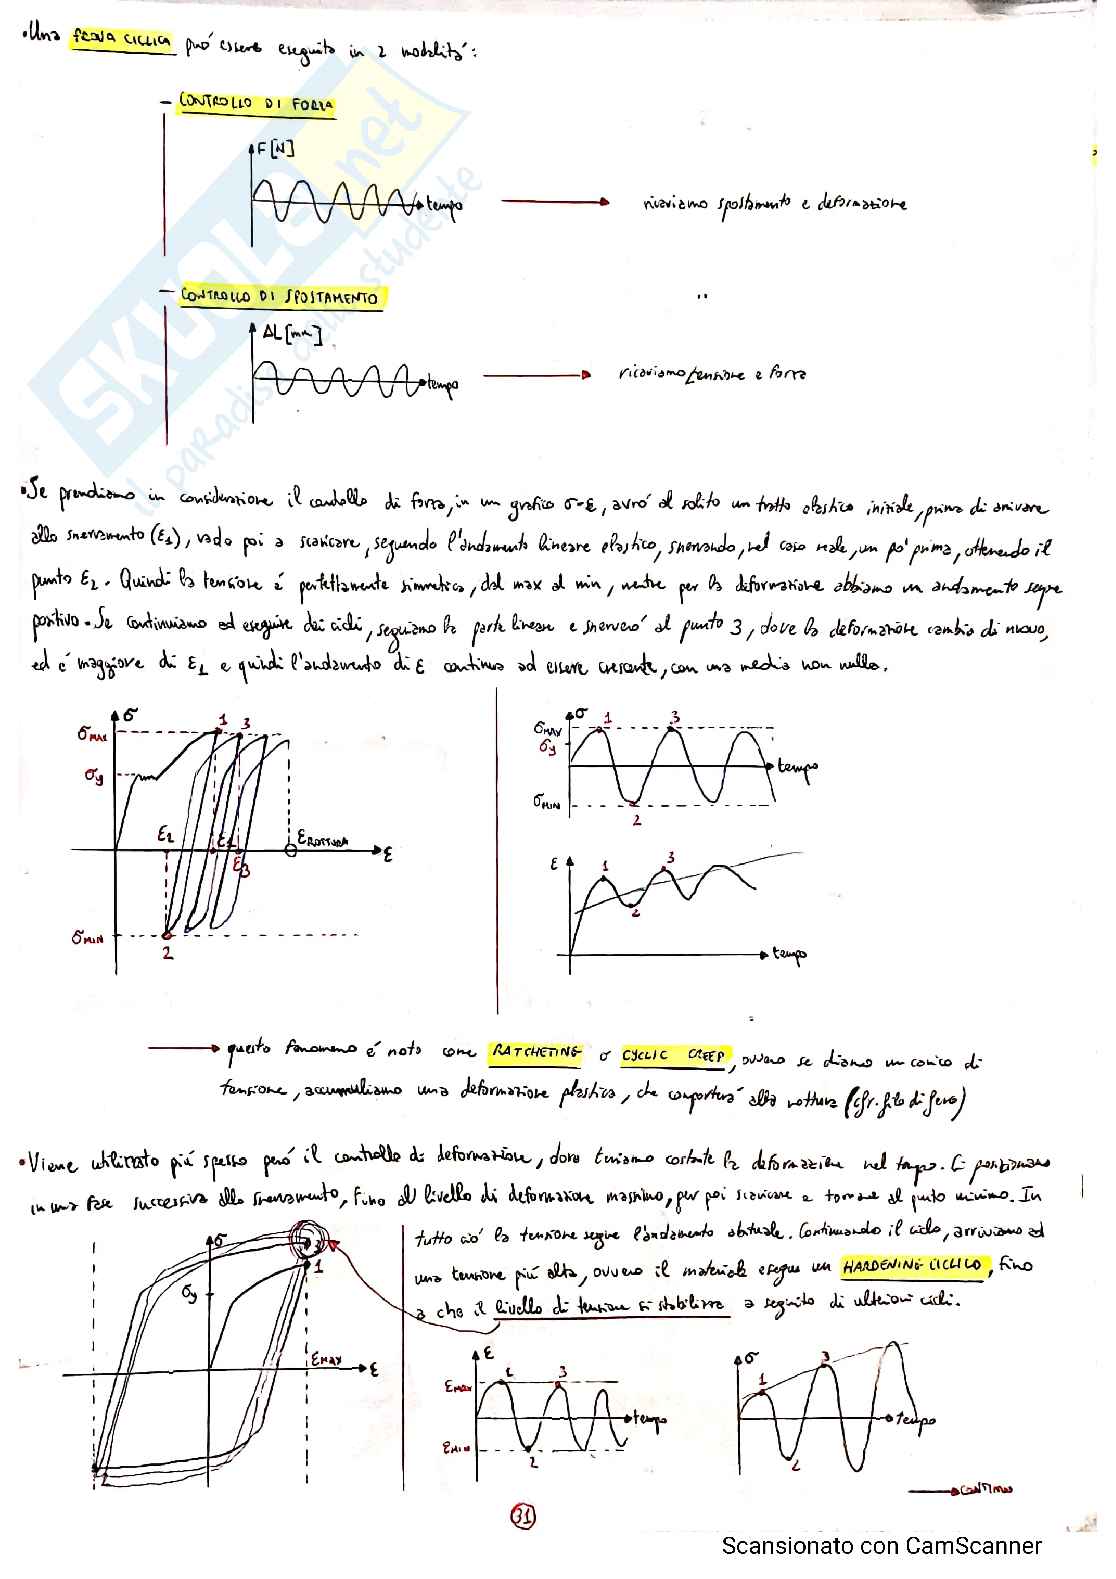 • Una PROVA CICLICA può essere eseguita in 2 modalità:
- CONTROLLO DI FORZA
F[N]
tempo
ricaviamo spostamento e deformazione
- CONTROLLO DI SPOSTAMENTO
"
ΔL[mm]
tempo
ricaviamo tensione e forza
• Se prendiamo in considerazione il controllo di forza, in un grafico σ-ε, avrò al solito un tratto elastico iniziale, prima di arrivare
allo snervamento (ε1), vado poi a scaricare, seguendo l'andamento lineare elastico, snervando, nel caso reale, un po' prima, ottenendo il
punto ε2. Quindi la tensione è perfettamente simmetrica, dal max al min, mentre per la deformazione abbiamo un andamento sempre
positivo. Se continuiamo ad eseguire dei cicli, seguiamo la parte lineare e snerverò al punto 3, dove la deformazione cambia di nuovo,
ed è maggiore di ε1 e quindi l'andamento di ε continua ad essere crescente, con una media non nulla.
σ
σMAX
1
3
σy
ε2
ε1
εROTTURA
ε
ε3
σMIN
2
σ
σMAX
1
3
σy
tempo
σMIN
2
ε
1
3
2
tempo
questo fenomeno è noto come RATCHETING o CYCLIC CREEP, ovvero se diamo un carico di
tensione, accumuliamo una deformazione plastica, che comporterà alla rottura (cfr. filo di ferro)
• Viene utilizzato più spesso però il controllo di deformazione, dove teniamo costante la deformazione nel tempo. Ci posizioniamo
in una fase successiva allo snervamento, fino al livello di deformazione massimo, per poi scaricare e tornare al punto minimo. In
tutto ciò la tensione segue l'andamento abituale. Continuando il ciclo, arriviamo ad
una tensione più alta, ovvero il materiale esegue un HARDENING CICLICO, fino
a che il livello di tensione si stabilizza a seguito di ulteriori cicli.
σ
3
1
σy
εMAX
ε
2
ε
εMAX
1
3
tempo
εMIN
2
σ
1
3
tempo
2
CONTINUA
31
Scansionato con CamScanner
SKUOLA.net
il paradiso dello studente